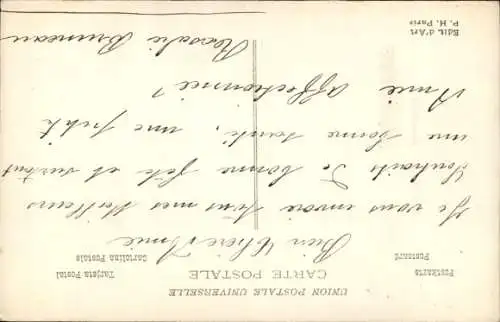 UNION POSTALE UNIVERSELLE
CARTE POSTALE
Postkarte
Postcard
Tarjeta Postal
Cartolina Postale
Bien Chère Amie
Je vous envoie tous mes meilleurs
Souhaits de bonne fête et surtout
une bonne santé, une petite
Amie affectionnée
Bruneau
Edit. d'Art
P. H. Paris